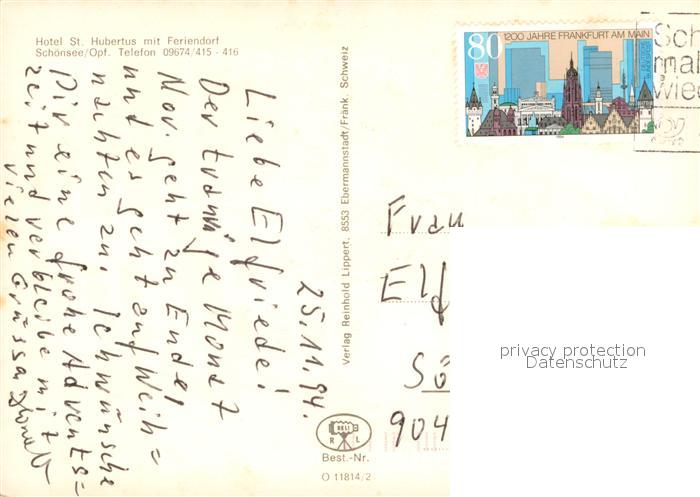 Hotel St. Hubertus mit Feriendorf
Schönsee/Opf. Telefon 09674/415 - 416
25.11.94.
Liebe Elfriede!
Der traurige Monat
Nov. geht zu Ende,
und es geht auf Weih=
nachten zu. Ich wünsche
Dir eine frohe Advents=
zeit und verbleibe mit
vielen Grüssen
Verlag Reinhold Lippert, 8553 Ebermannstadt/Fränk. Schweiz
BELI
R L
Best.-Nr.
O 11814/2
80
1200 JAHRE FRANKFURT AM MAIN
Sch
mal
wied
Frau
Elf
Sö
904
privacy protection
Datenschutz